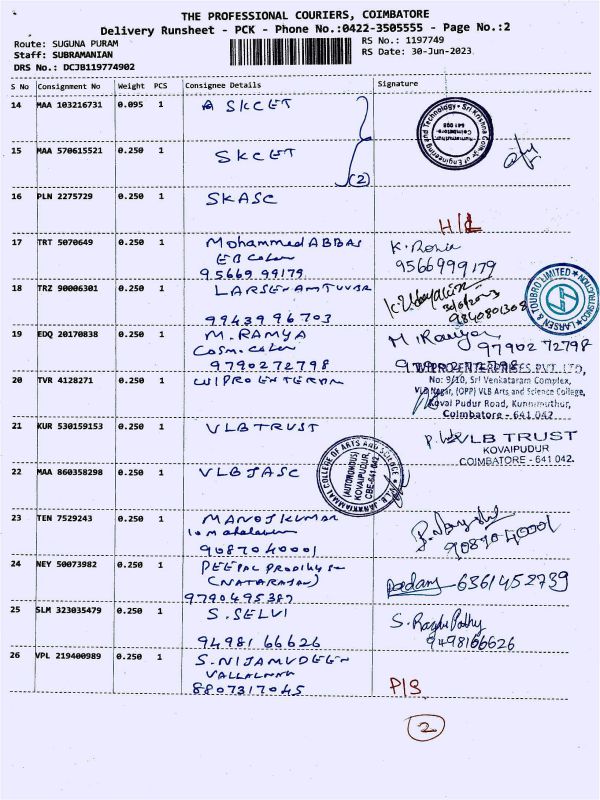 THE PROFESSIONAL COURIERS, COIMBATORE
Delivery Runsheet - PCK - Phone No.:0422-3505555 - Page No.:2
Route: SUGUNA PURAM
RS No.: 1197749
Staff: SUBRAMANIAN
RS Date: 30-Jun-2023
DRS No.: DCJB119774902
S No Consignment No Weight PCS Consignee Details Signature
14 MAA 103216731 0.095 1 A SKCET
15 MAA 570615521 0.250 1 SKCET
(2)
16 PLN 2275729 0.250 1 SKASC
H/L
17 TRT 5070649 0.250 1 Mohammed ABBAS
EB Colony
95669 99179
9566999179
18 TRZ 90006301 0.250 1
9943996703
30/6/2023
9840801308
LARSEN & TOUBRO LIMITED
CONSTRUCTION
19 EDQ 20170838 0.250 1 M. RAMYA
9790272798
97902 72798
20 TVR 4128271 0.250 1
No: 9/10, Sri Venkataram Complex,
VLB Nagar, (OPP) VLB Arts and Science College,
Kovai Pudur Road, Kuniamuthur,
Coimbatore - 641 042.
21 KUR 530159153 0.250 1 VLB TRUST
VLB TRUST
KOVAIPUDUR
COIMBATORE - 641 042.
22 MAA 860358298 0.250 1 VLBJASC
COLLEGE OF ARTS AND SCIENCE
(AUTONOMOUS)
KOVAIPUDUR,
CBE-641 042
23 TEN 7529243 0.250 1 MANOJKUMAR
9087040001
9087040001
24 NEY 50073982 0.250 1
(NATARAJAN)
9790495387
6361452739
25 SLM 323035479 0.250 1 S. SELVI
94981 66626
9498166626
26 VPL 219400989 0.250 1 S. NIJAMUDEEN
8807317045
P/S
2